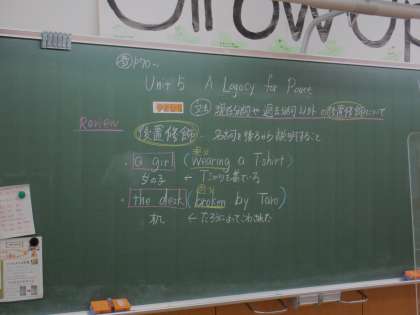 Grow Up
教p70~
Unit 5 A Legacy for Peace
文法 現在分詞や過去分詞以外の後置修飾について
Review
後置修飾 - 名詞を後ろから説明すること
現分
・a girl (wearing a T shirt)
女の子 ← Tシャツを着ている
過分
・the desk (broken by Taro)
机 ← たろうによってこわされた